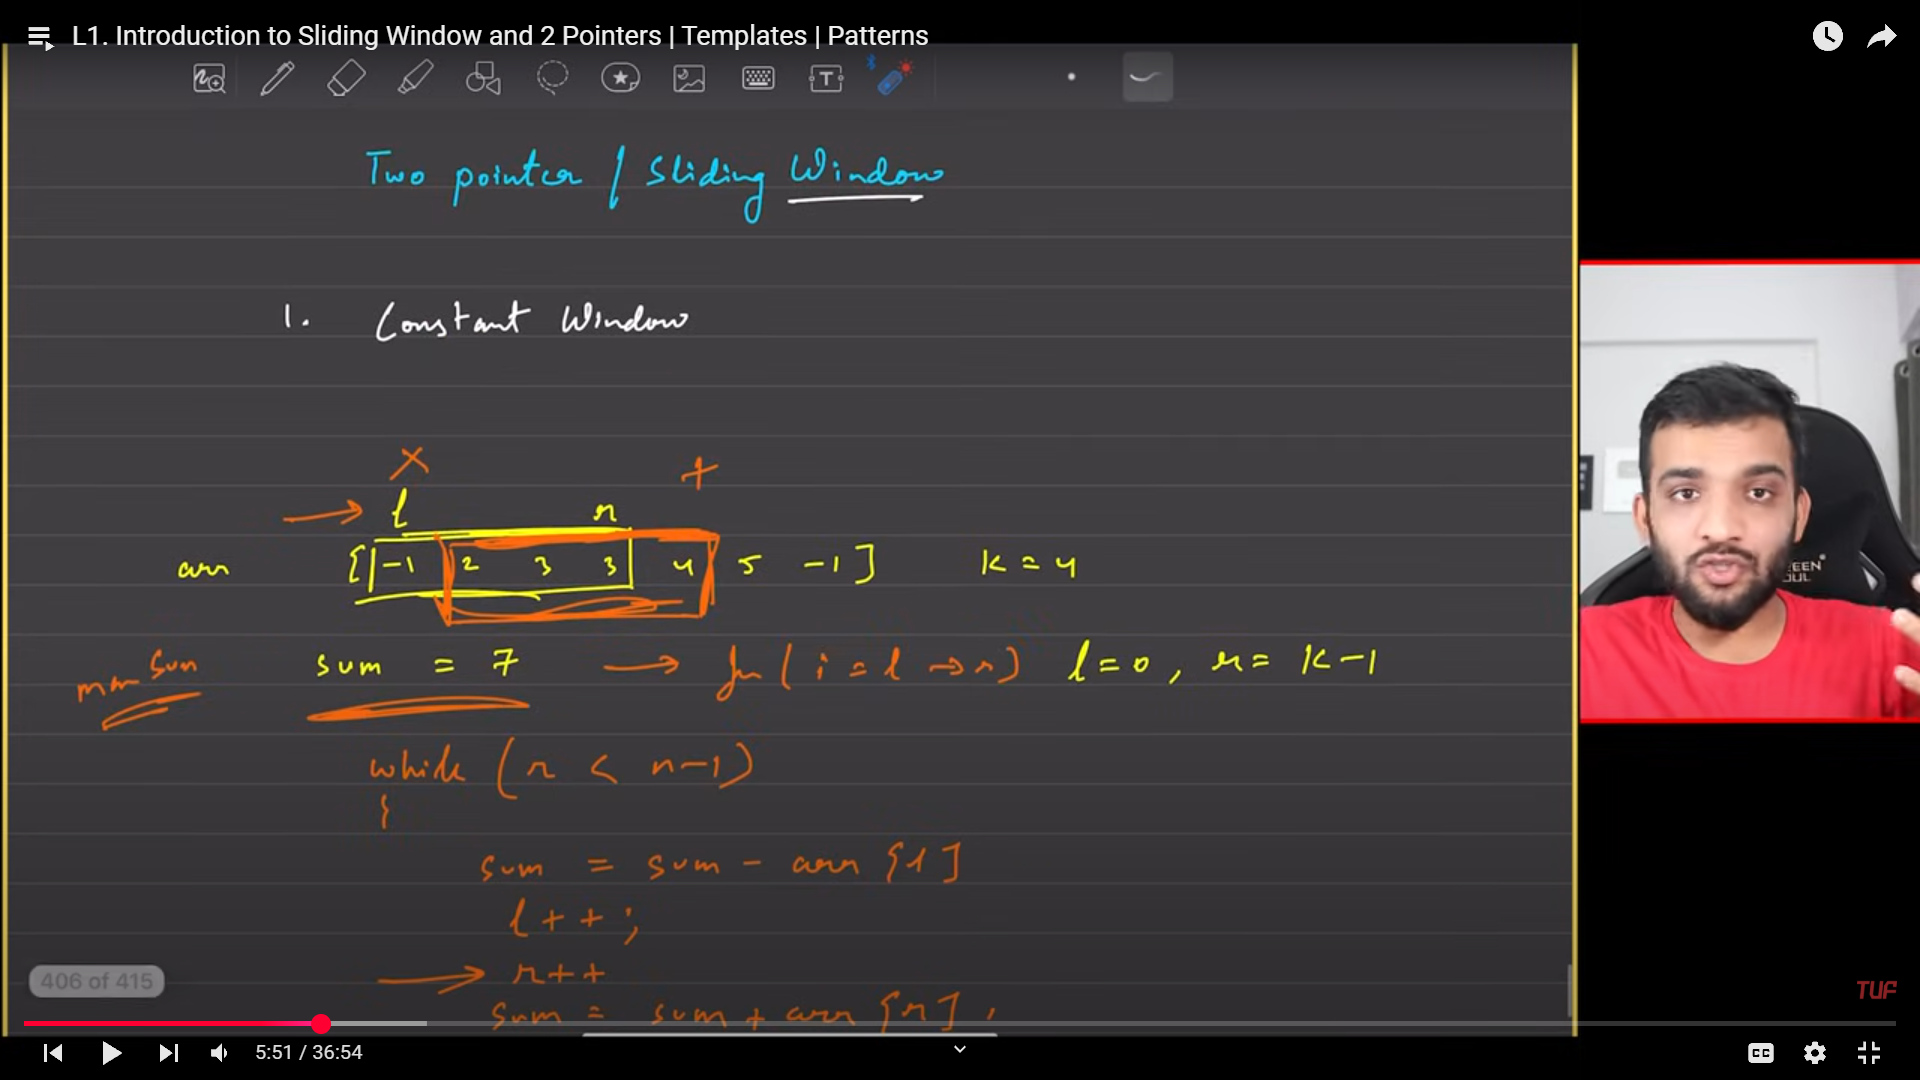 L1. Introduction to Sliding Window and 2 Pointers | Templates | Patterns
T
Two pointer / Sliding Window
1. Constant Window
l r
arr [ -1 2 3 3 4 5 -1 ] k = 4
EEN
OUL
max sum sum = 7 → for ( i = l → r ) l = 0 , r = k-1
while ( r < n-1 )
{
sum = sum - arr [l]
l++;
406 of 415
→ r++
TUF
sum = sum + arr [r] ;
5:51 / 36:54
CC